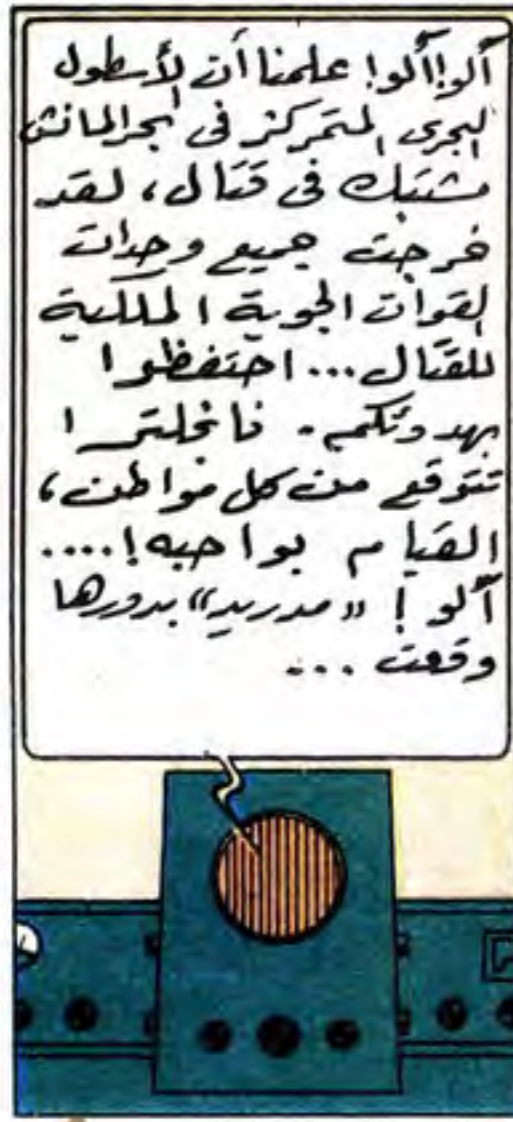 ألو! ألو! علمنا أن الأسطول
البحرى المتمركز فى بحر المانش
مشتبك فى قتال، لقد
خرجت جميع وحدات
القوات الجوية الملكية
للقتال... احتفظوا
بهدوئكم. فانجلترا
تتوقع من كل مواطن،
القيام بواجبه!....
ألو! «مدريد» بدورها
وقعت...